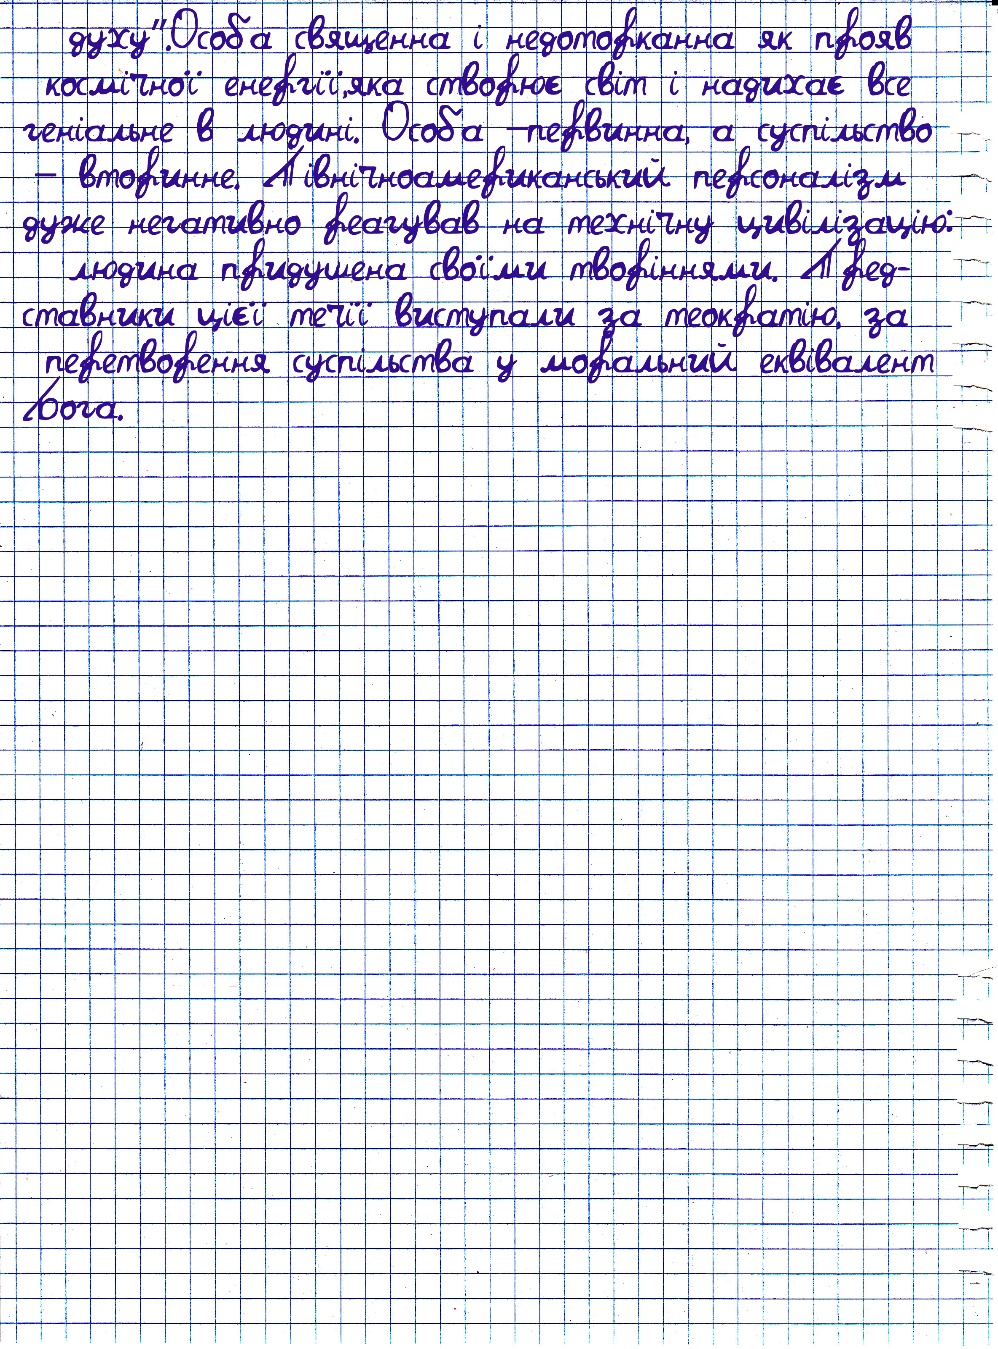 духу".Особа священна і недоторканна як прояв
космічної енергії,яка створює світ і надихає все
геніальне в людині. Особа –первинна, а суспільство
– вторинне. Північноамериканський персоналізм
дуже негативно реагував на технічну цивілізацію:
людина придушена своїми творіннями. Пред-
ставники цієї течії виступали за теократію, за
перетворення суспільства у моральний еквівалент
Бога.